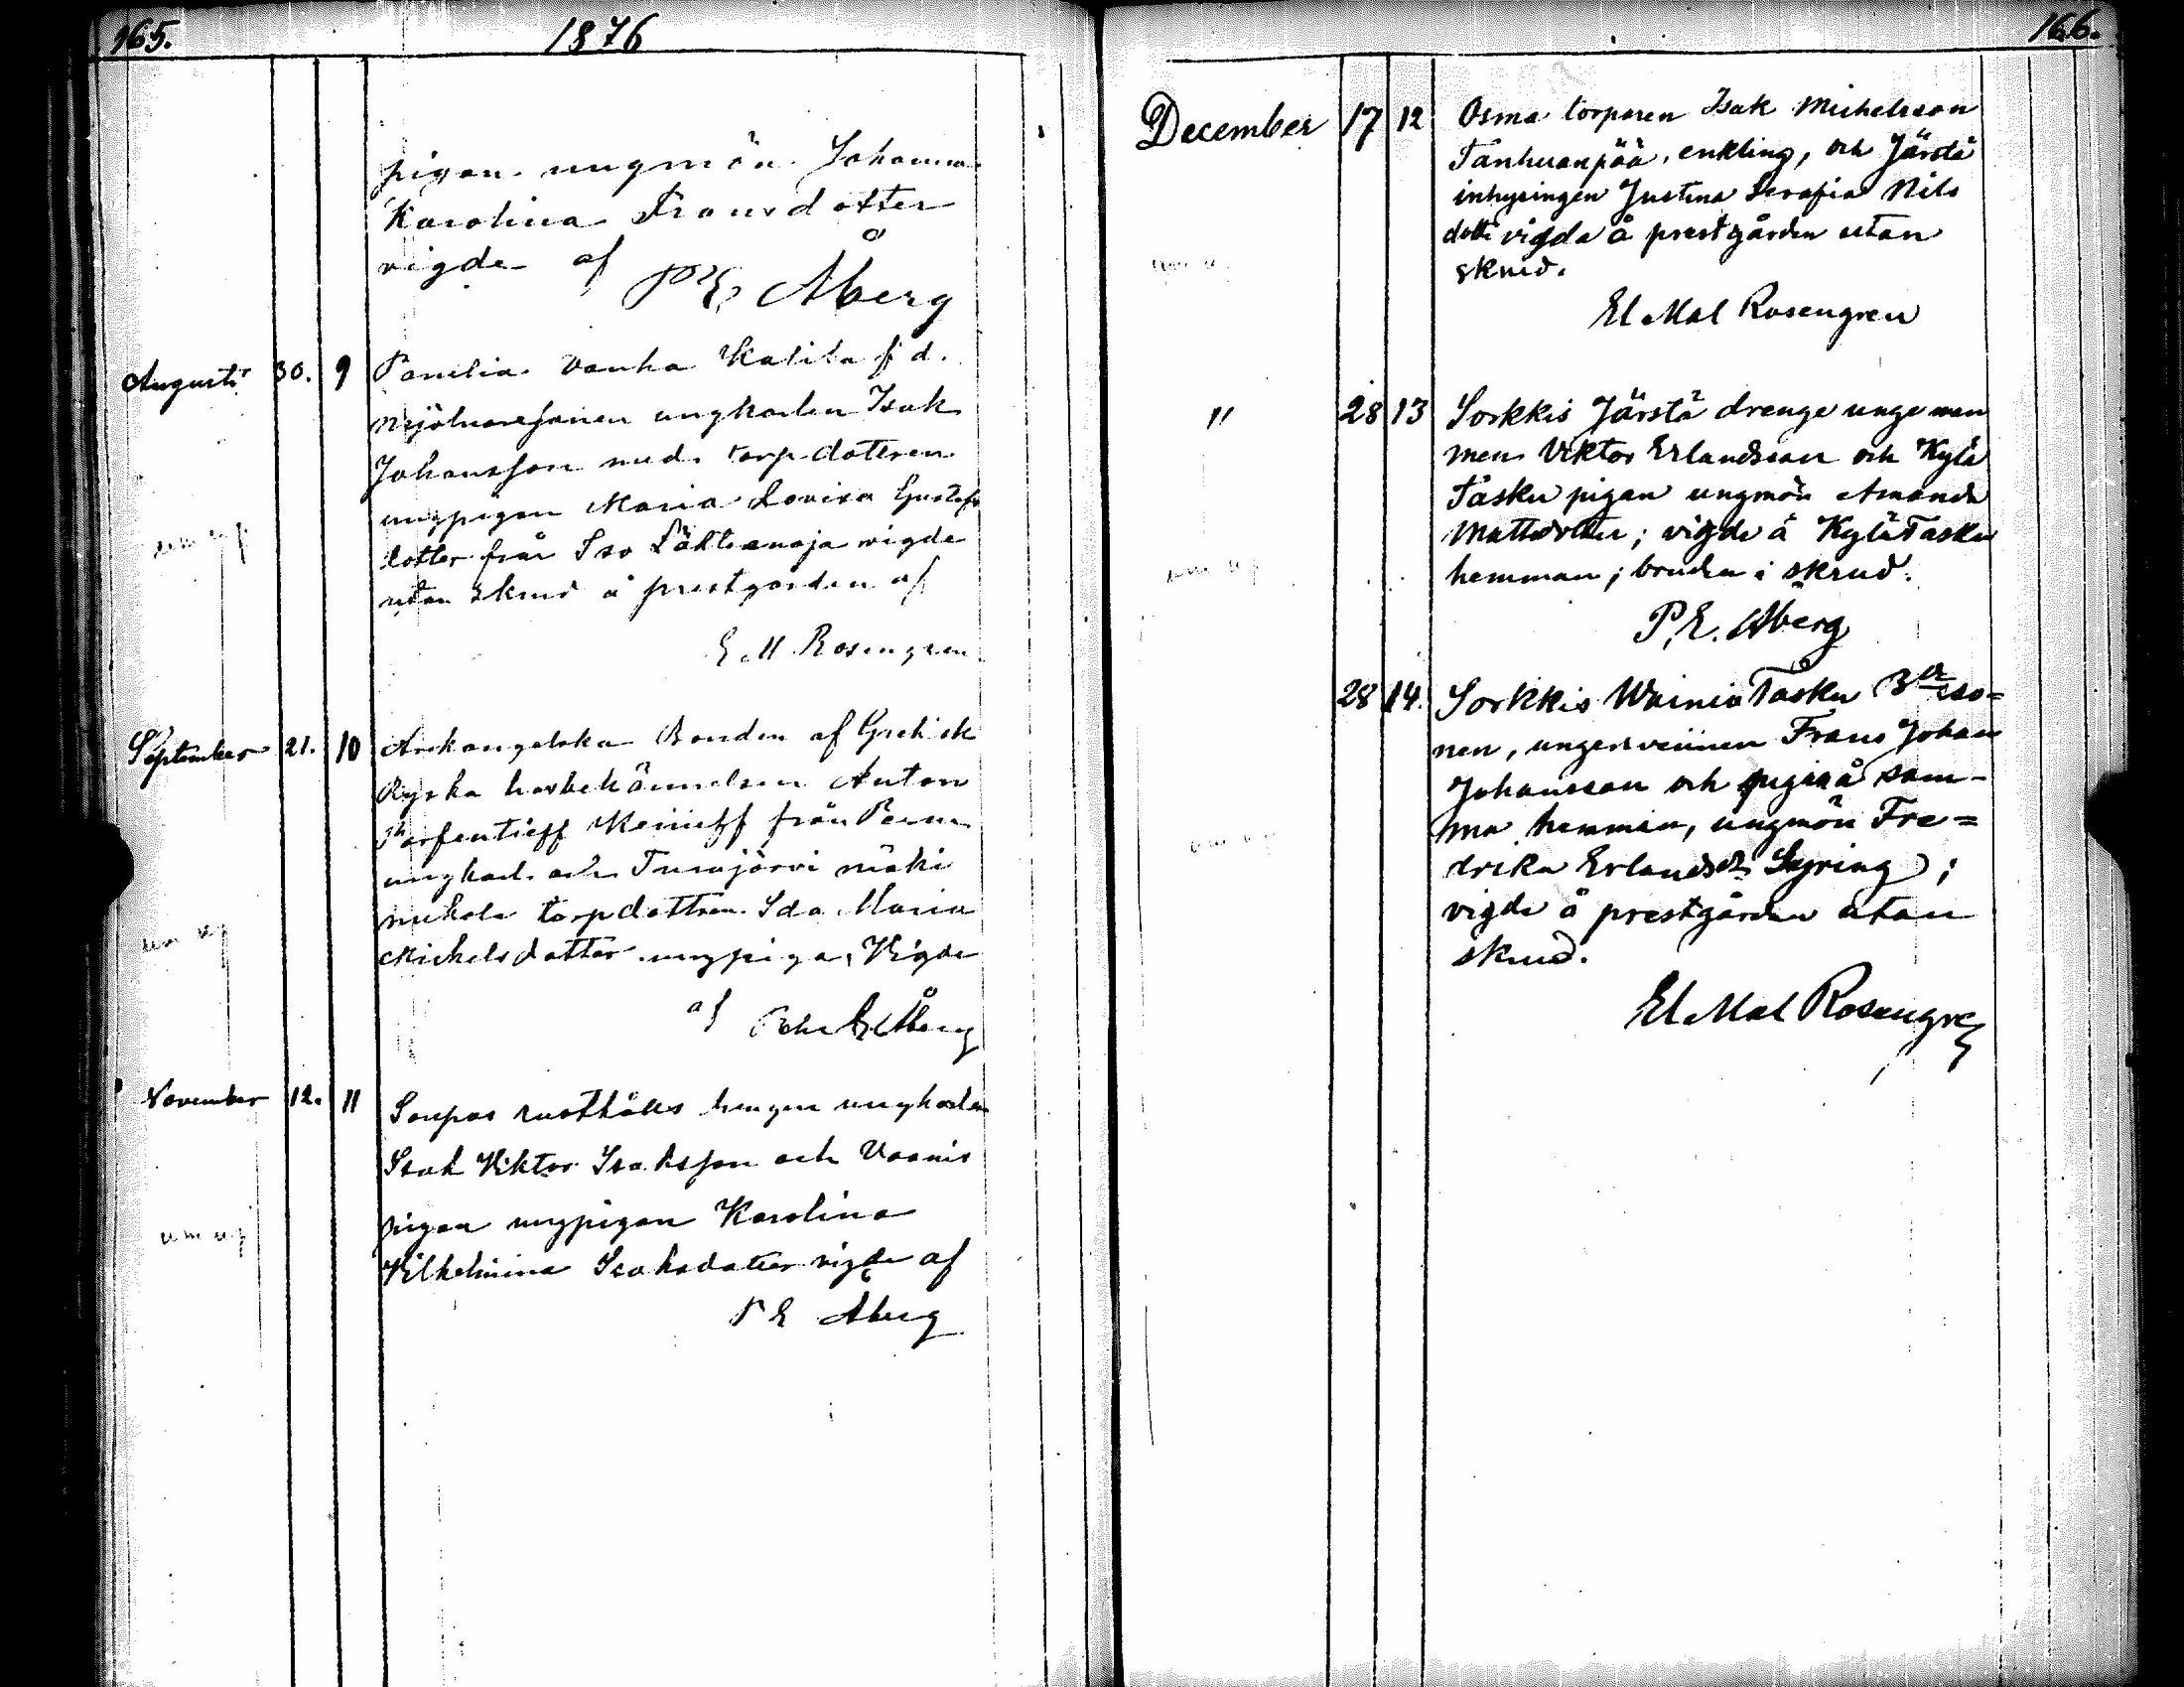 165.
1876
pigan ungmön Johanna
Karolina Fransdotter
vigde af
P E Åberg
Augusti 30. 9 Panelia Vanha Katila f d.
mjölnaresonen ungkarlen Isak
Johansson med torp dottren
ungpigan Maria Lovisa Gustafs
dotter från Iso Lähteenoja vigde
utan skrud å prestgården af
E M Rosengren
September 21. 10 Arkangelska Bonden af Grekisk
Ryska trosbekännelsen Anton
Parfentieff från Perm
ungkarl och Turajärvi mäki
nukola torpdottren Ida Maria
Michelsdotter ungpiga, Vigde
af Åberg
November 12. 11 Sonpas rusthålls ungkarlen
Isak Viktor Isaksson och Voonis
pigan ungpigan Karolina
Vilhelmina Isaksdotter vigde af
P E Åberg
166.
December 17 12 Osma torparen Isak Michelsson
Tanhuanpää, enkling, och Järstä
inhysingen Justina Serafia Nils
dottr vigda å prestgården utan
skrud.
El Mal Rosengren
" 28 13 Sorkkis Järstä drenge unge man
men Viktor Erlandsson och Kylä
Tasku pigan ungmön Amanda
Mattsdotter; vigde å Kylä Tasku
hemman; bruden i skrud.
P. E. Åberg
28 14. Sorkkis Wainio Tasku
nen, Frans Johan
Johansson och pigan å sam-
ma hemman, ungmön Fre=
drika Erlandsdr Syring;
vigde å prestgården utan
skrud.
El Mal Rosengren